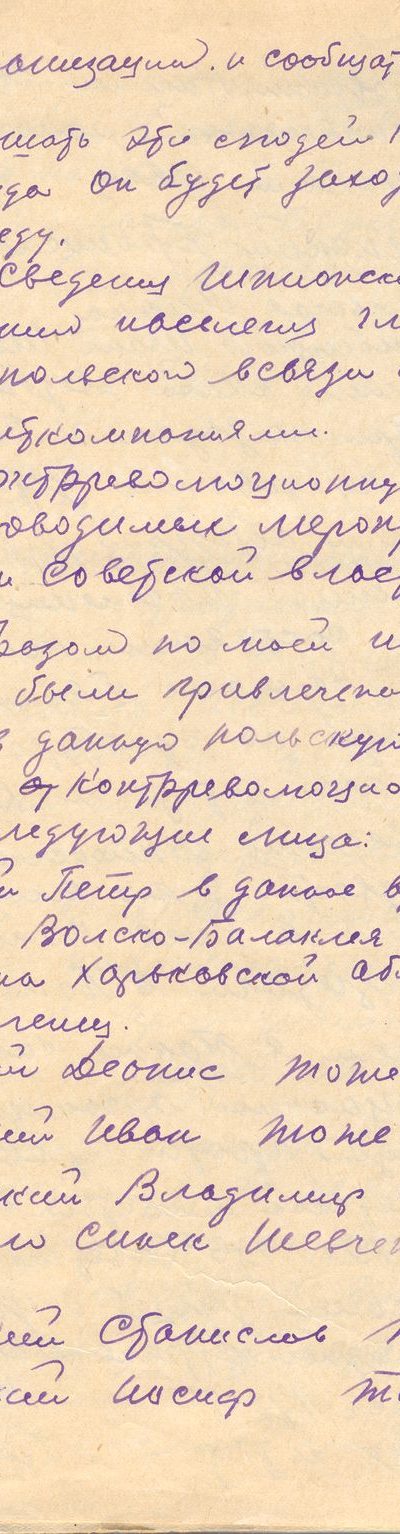 онизации. и сообщат
шать эти сподей
да он будет заход
еду.
Сведения шпионск
нию населения гл
польского всвязи
иткомпаниями.
онтрреволюционну
оводимых мероп
и Советской влас
разом по моей и
были привлечены
в данную польскую
контрреволюцио
ледующие лица:
й Петр в данное в
Волско-Балаклея
на Харьковской об
ленец.
й Деонис тоже
кий Иван тоже
кий Владимир
ло Синек Шевчен
кий Станислов
кий Иосиф т